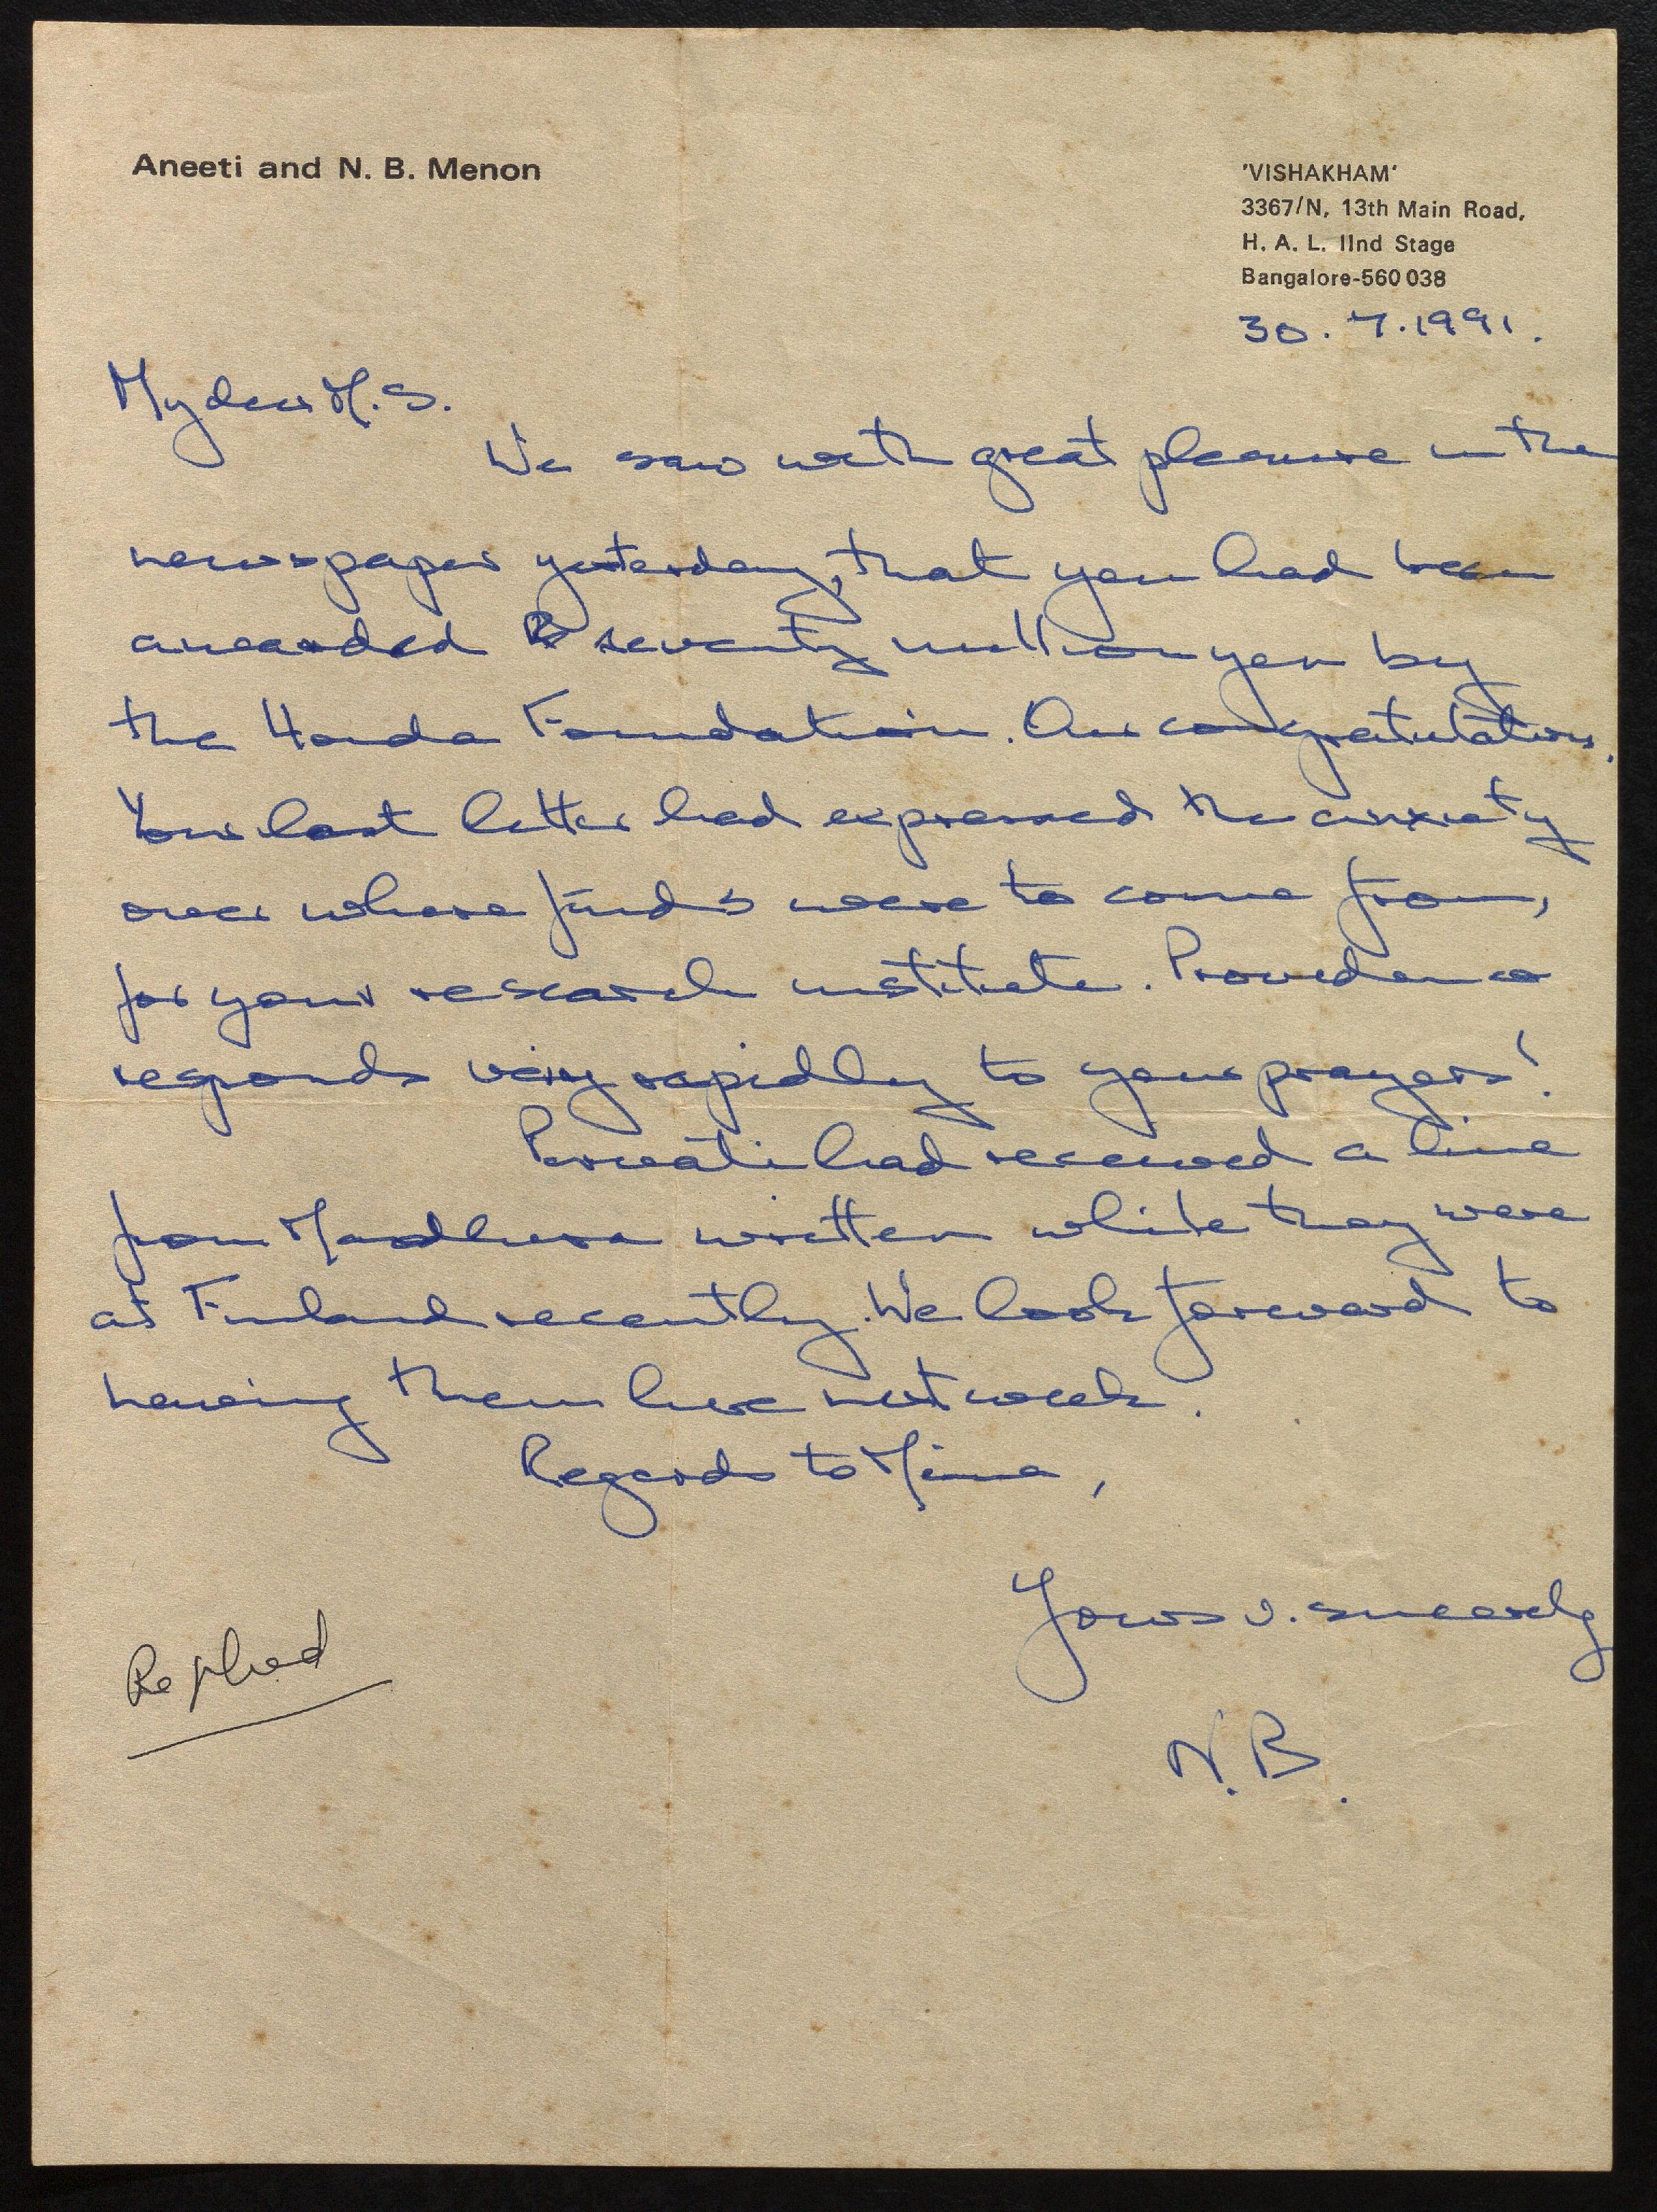 Aneeti and N. B. Menon
'VISHAKHAM'
3367/N, 13th Main Road,
H. A. L. IInd Stage
Bangalore-560 038
30.7.1991.
My dear M.S.
We saw with great pleasure in the
newspaper yesterday, that you had been
awarded seventy million yen by
the Honda Foundation. Our congratulations.
Your last letter had expressed the anxiety
over where funds were to come from,
for your research institute. Providence
responds very rapidly to your prayers!
Parvati had received a line
from Madhura written while they were
at Finland recently. We look forward to
having them here next week.
Regards to Mina,
Yours v. sincerely
N.B.
Replied